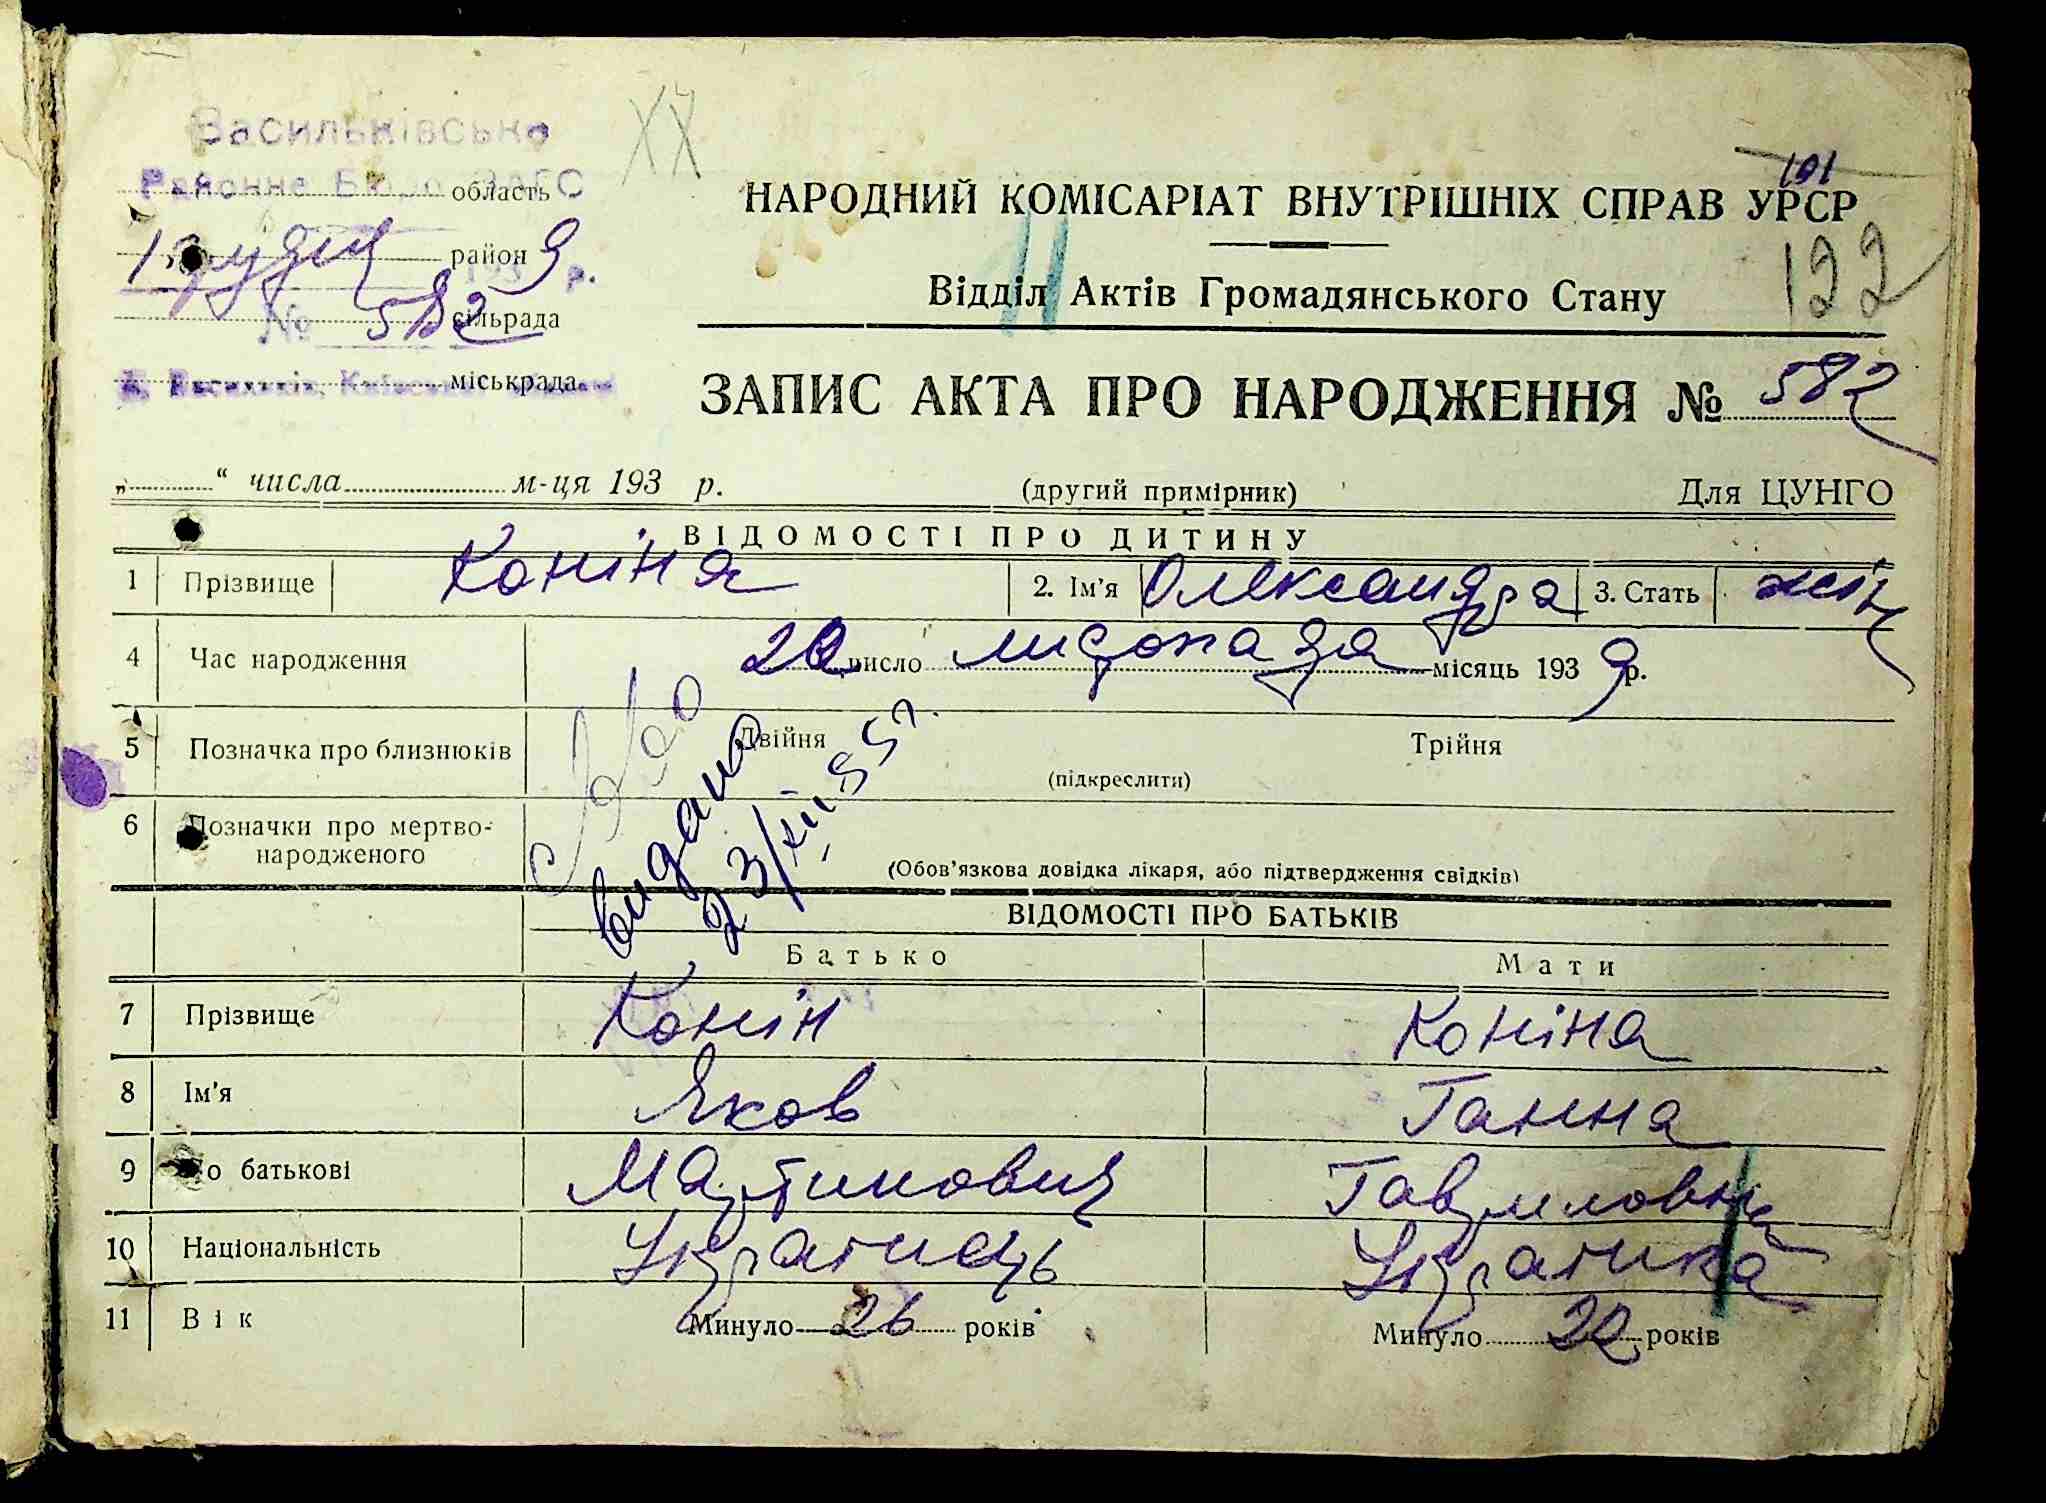 Васильківське
Районне Бюро ЗАГС
область
1 грудня район 1939 р.
№ 582 сільрада
м. Васильків, Київської міськрада
ХХ
101
НАРОДНИЙ КОМІСАРІАТ ВНУТРІШНІХ СПРАВ УРСР
122
11
Відділ Актів Громадянського Стану
ЗАПИС АКТА ПРО НАРОДЖЕННЯ № 582
„ “ числа м-ця 193 р. (другий примірник) Для ЦУНГО
ВІДОМОСТІ ПРО ДИТИНУ
1 Прізвище Коніна 2. Ім'я Олександра 3. Стать жін
4 Час народження 20 число листопада місяць 1939 р.
5 Позначка про близнюків Двійня Трійня
(підкреслити)
6 Позначки про мертво-
народженого
(Обов'язкова довідка лікаря, або підтвердження свідків)
видано
23/XII 55 г.
ВІДОМОСТІ ПРО БАТЬКІВ
Батько Мати
7 Прізвище Конін Коніна
8 Ім'я Яков Ганна
9 По батькові Мартинович Гавриловна
10 Національність Українець Українка
11 Вік Минуло 26 років Минуло 22 років